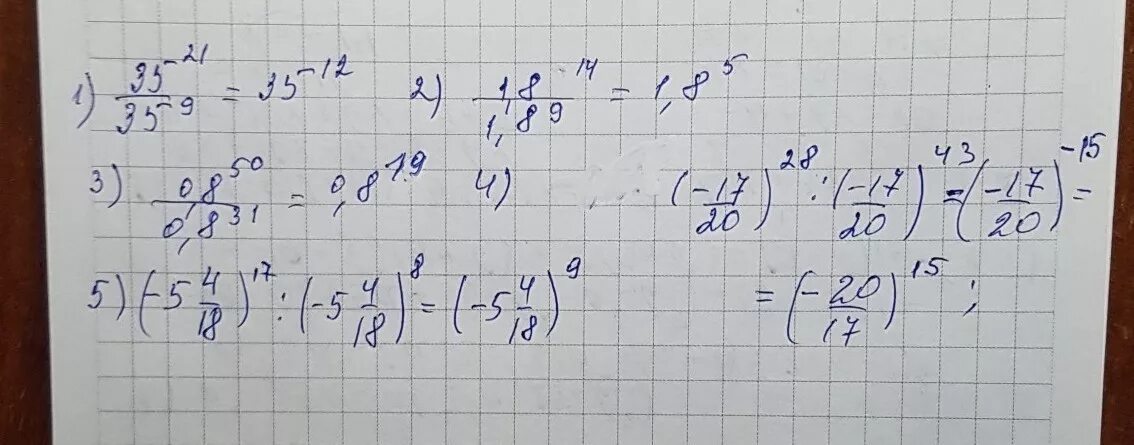 1) 35^-21 / 35^-9 = 35^-12 2) 1,8^14 / 1,8^9 = 1,8^5
3) 0,8^50 / 0,8^31 = 0,8^19 4) (-17/20)^28 : (-17/20)^43 = (-17/20)^-15 =
5) (-5 4/18)^17 : (-5 4/18)^8 = (-5 4/18)^9 = (-20/17)^15 ;